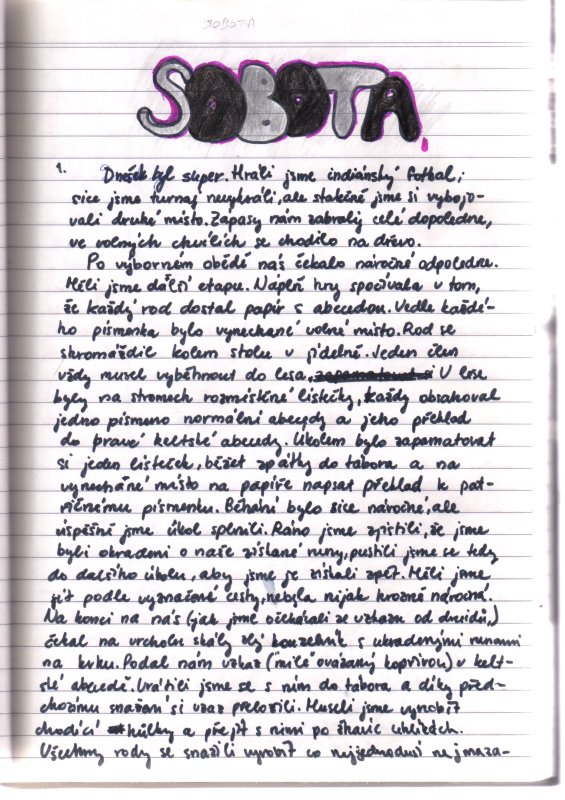 SOBOTA
SOBOTA.
1. Dnešek byl super. Hráli jsme indiánský fotbal,
sice jsme turnaj nevyhráli, ale statečně jsme si vybojo-
vali druhé místo. Zápasy nám zabraly celé dopoledne,
ve volných chvílích se chodilo na dřevo.
Po výborném obědě nás čekalo náročné odpoledne.
Měli jsme další etapu. Náplň hry spočívala v tom,
že každý rod dostal papír s abecedou. Vedle každé-
ho písmenka bylo vynechané volné místo. Rod se
shromáždil kolem stolu v jídelně. Jeden člen
vždy musel vyběhnout do lesa, V lese
byly na stromech rozmístěné lístečky, každý obsahoval
jedno písmeno normální abecedy a jeho překlad
do pravé keltské abecedy. Úkolem bylo zapamatovat
si jeden lísteček, běžet zpátky do tábora a na
vynechané místo na papíře napsat překlad k pat-
řičnému písmenku. Běhání bylo sice náročné, ale
úspěšně jsme úkol splnili. Ráno jsme zjistili, že jsme
byli okradeni o naše získané runy, pustili jsme se tedy
do dalšího úkolu, aby jsme je získali zpět. Měli jsme
jít podle vyznačené cesty, nebyla nijak hrozně náročná.
Na konci na nás (jak jsme očekávali ze vzkazu od druidů,)
čekal na vrcholu skály zlý kouzelník s ukradenými runami
na krku. Podal nám vzkaz (míle ovázaný kopřivou) v kelt-
ské abecedě. Vrátili jsme se s ním do tábora a díky před-
chozímu snažení si vzaz přeložili. Museli jsme vyrobit
chodící hůlky a přejít s nimi po žhavíc uhlíkách.
Všechny rody se snažili vyrobit co nejjednodusí nejmaza-